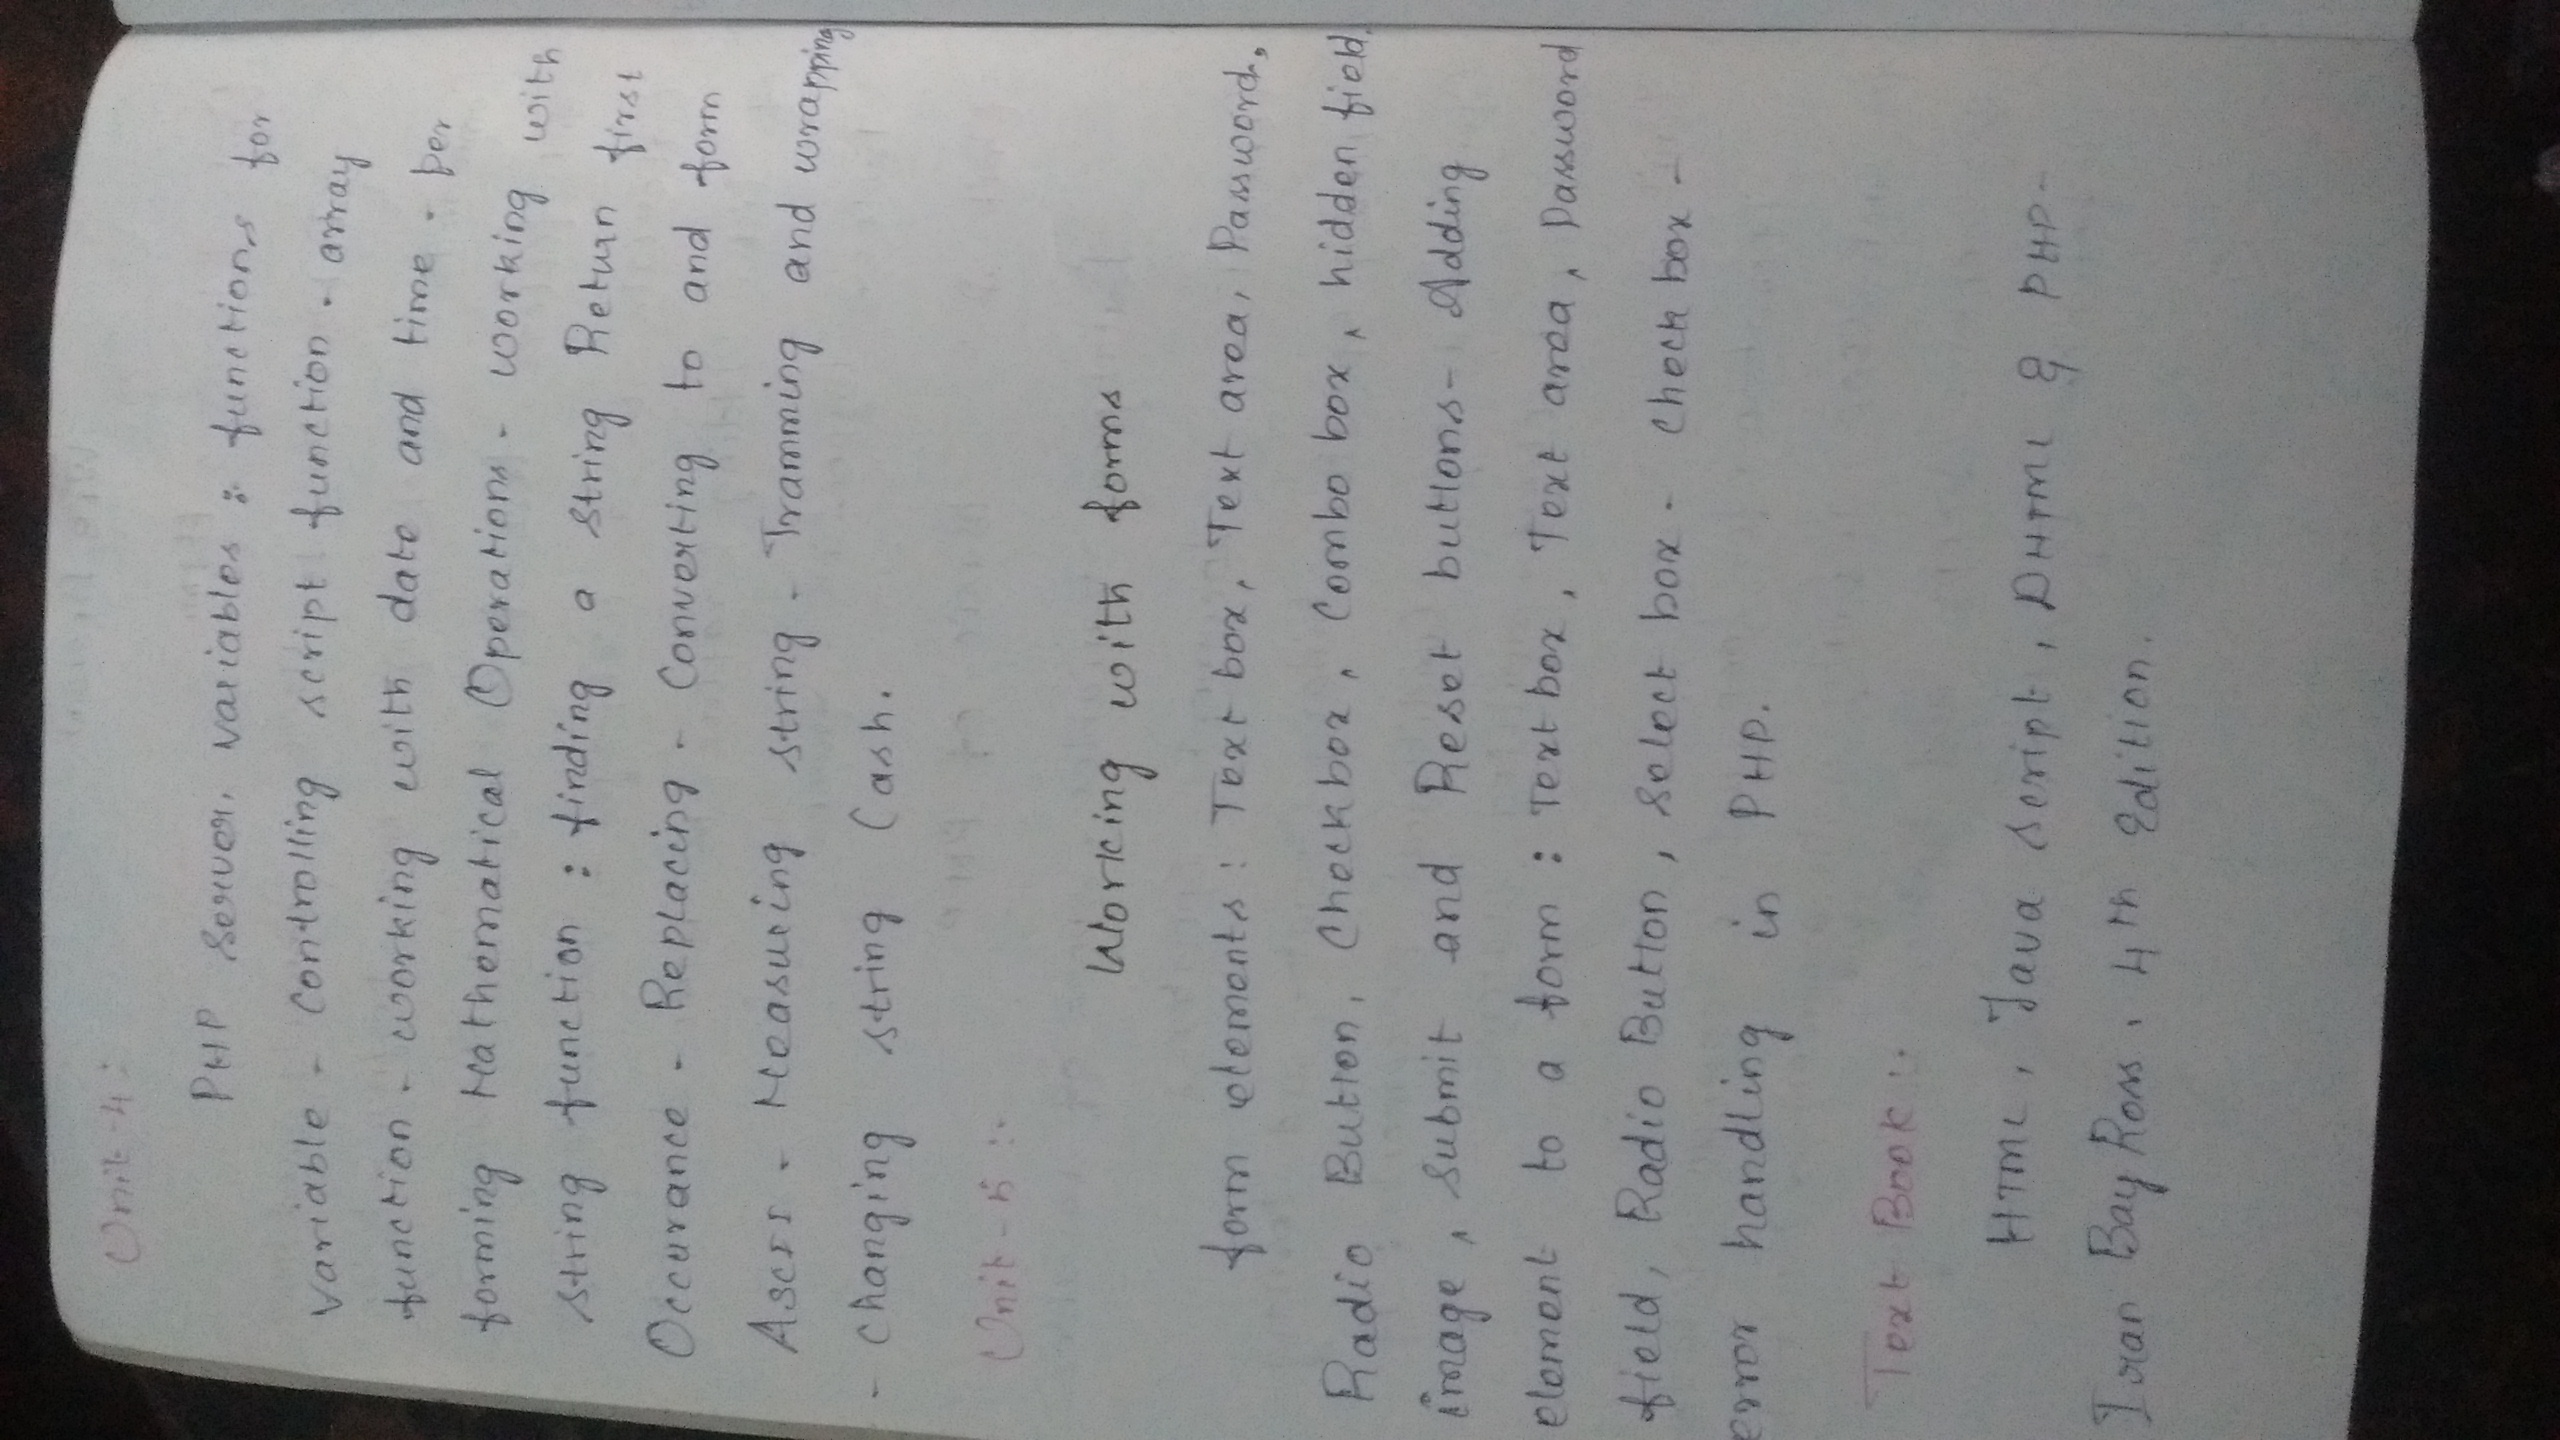 Unit-4:
PHP Server. variables : functions for
variable - Controlling script function - array
function - working with date and time - per
forming Mathematical Operations - working with
string function : finding a string Return first
Occurance - Replacing - Converting to and form
Ascii - Measuring string - Tramming and wrapping
- changing string Cash.
Unit-5 :-
Working with forms
form elements : Text box, Text area, Password,
Radio Button, Checkbox, Combo box, hidden field,
image, Submit and Reset buttons - Adding
element to a form : Text box, Text area, Password
field, Radio Button, select box - check box -
error handling in PHP.
Text Book :-
HTML, Java Script, DHTML & PHP -
Ivan Bay Ross, 4th Edition.